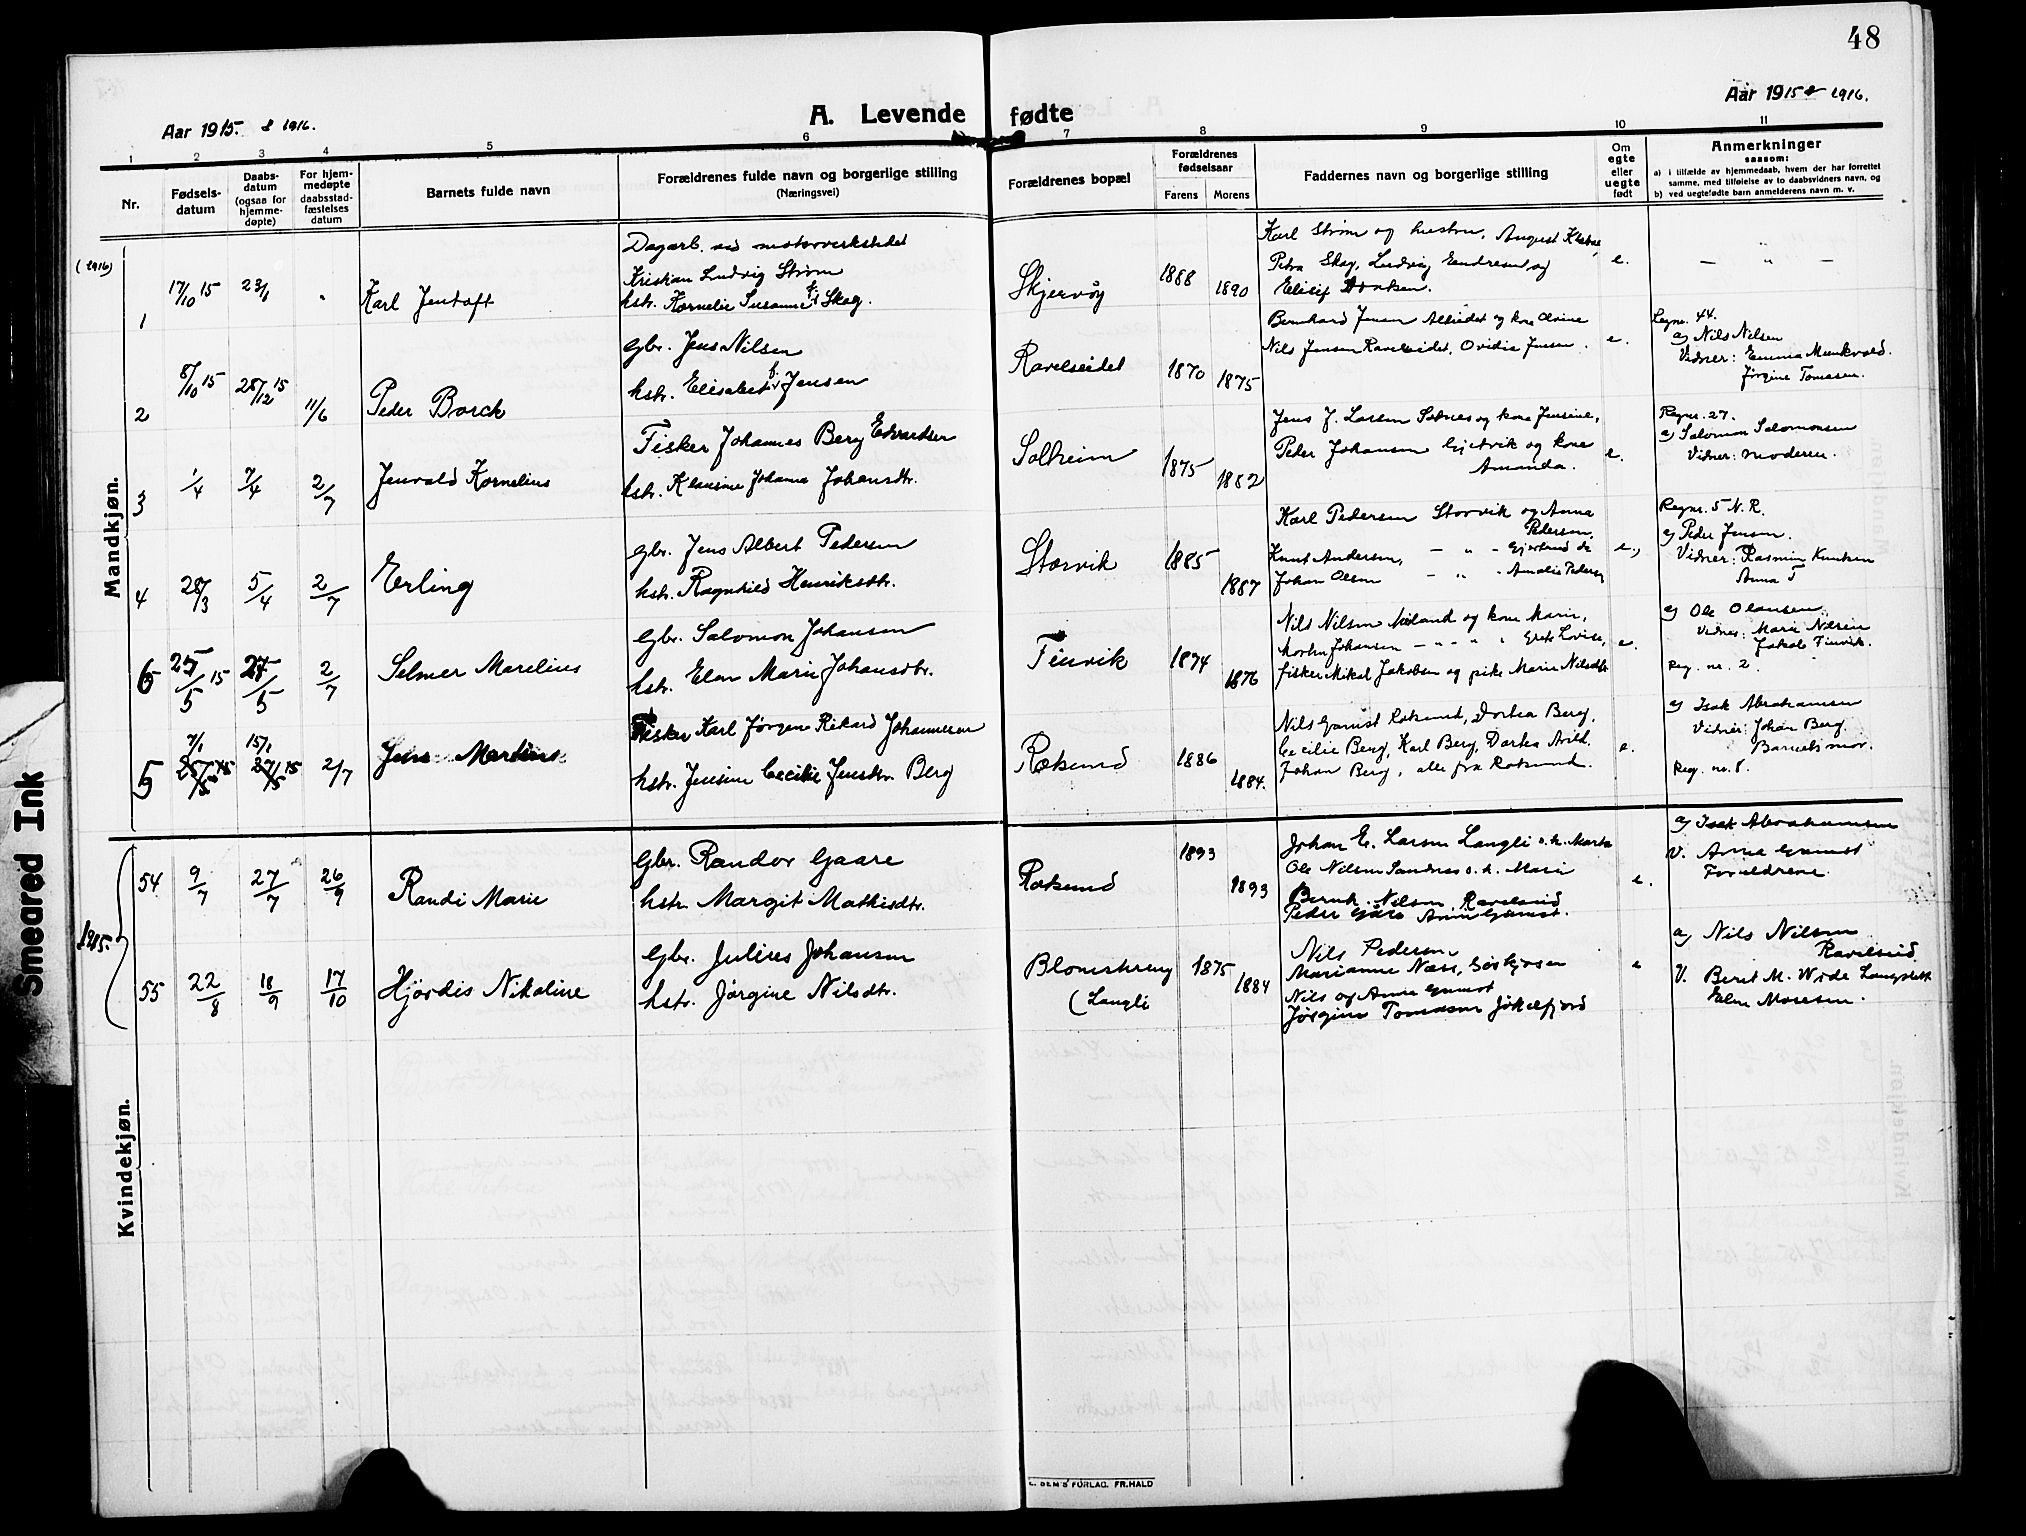 48
Aar 1915 & 1916.
A. Levende fødte
Aar 1915 & 1916.
1 2 3 4 5 6 7 8 9 10 11
Nr.
Fødsels-
datum
Daabs-
datum
(ogsaa for
hjemme-
døpte)
For hjem-
medøpte
daabsstad-
fæstelses
datum
Barnets fulde navn
Forældrenes fulde navn og borgerlige stilling
(Næringsvei)
Forældrenes bopæl
Forældrenes
fødselsaar
Farens Morens
Faddernes navn og borgerlige stilling
Om
egte
eller
uegte
født
Anmerkninger
saasom:
a) i tilfælde av hjemmedaab, hvem der har forrettet
samme, med tilføielse av to daabsvidners navn, og
b) ved uegtefødte barn anmelderens navn m. v.
Mandkjøn.
(1916)
1
17/10 15
23/1
"
Karl Jentoft
Dagarb. ved motorverkstedet
Kristian Ludvig Strøm
hstr. Kornelie Susanne f. Skog.
Skjervøy
1888
1890
Karl Strøm og hustru, August
Petra Skog, Ludvig Endresen og
Elisif
e.
— " —
2
8/10 15
28/12 15
11/6
Peder Borch
Gbr. Jens Nilsen
hstr. Elisabet f. Jensen
Ravelseidet
1870
1875
Bernhard Jensen og kone
Nils Jensen Ravelseidet, Ovidia Jensen.
e.
44.
a) Nils Nilsen
Vidner: Emma Munkvold.
Jørgine Tomasen.
3
1/4
7/4
2/7
Jenvald Kornelius
Fisker Johannes Berg Edvardsen
hstr. Klausine Johanna Johansdtr.
Solheim
1875
1882
Jens J. Larsen og kone Jensine,
Peder Johansen Gjetvik og kone
Amanda.
e.
Regnr. 27.
a) Salomon Salomonsen
Vidner: moderen.
4
28/3
5/4
2/7
Erling
Gbr. Jens Albert Pedersen
hstr. Ragnhild Henriksdtr.
Storvik
1885
1887
Karl Pedersen Storvik og Anna
Pedersen,
Knut Andersen, — " — Gjertrud do
Johan Olsen — " — Amalie Pedersen
e.,
Regnr. 5 N. R.
a) Peder Jensen.
Vidner: Rasmus Knutsen
Anna
6
25/5 15
27/5
2/7
Selmer Marelius
Gbr. Salomon Johansen
hstr. Elen Marie Johansdtr.
Finvik
1874
1876
Nils Nilsen og kone Marie,
Morten Johansen — " — " Grete Lovise,
fisker Mikal Jakobsen og pike Marie Nilsdtr
e.
a) Ole Olausen
Vidner: Marie Nilsen
Jakob Finvik.
Reg. nr. 2
5
7/1
15/1
27/5 15
2/7
Jens Martius
Fisker Karl Jørgen Rikard Johannesen
hstr. Jensine Cecilie Jensdtr. Berg
Roksund
1886
1884.
Nils Gamst Roksund, Dortea Berg,
Cecilie Berg, Karl Berg, Dortea Arild.
Johan Berg, alle fra Roksund.
e.
a) Isak Abrahamsen
Vidner: Johan Berg
Barnets mor.
Reg. nr. 8.
Kvindekjøn.
1915.
54
9/7
27/7
26/9
Randi Marie
Gbr. Randor Gaare
hstr. Margit Mathisdtr.
Roksund
1893
1893
Johan E. Larsen Langli o. h. Marta
Ole Nilsen Sandnes o. h. Marie
Bernh. Nilsen, Ravelseid
Peder Gåre Anna Gamst.
e.
a) Isak Abrahamsen
V. Anna Gamst
Forældrene.
55
22/8
18/9
17/10
Hjørdis Nikoline
Gbr. Julius Johansen
hstr. Jørgine Nilsdtr.
Blomstereng
(Langli
1875
1884
Nils Pedersen
Marianne Næss,
Nils og Anna Gamst
Jørgine Tomassen Jøkelfjord
e
a) Nils Nilsen
Ravelseid,
V. Berit M. Langslett
Elen Mosesen.
E. SEM'S FORLAG. FR.HALD
Smeared Ink